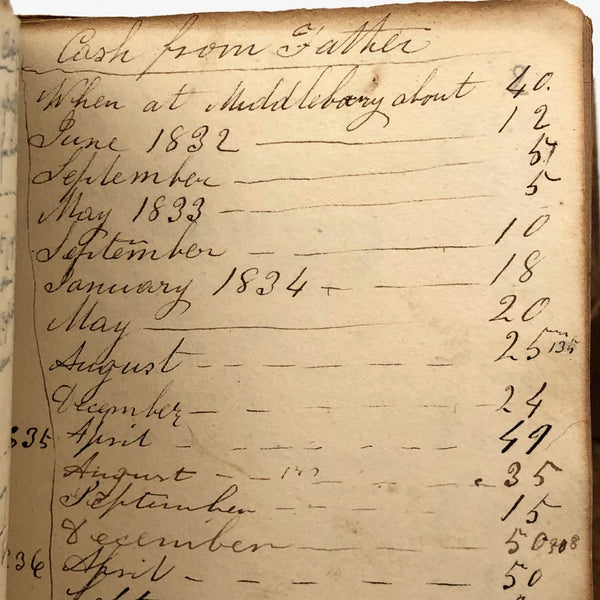 Cash from Father
When at Middlebury about 40.
June 1832 12
September 5
May 1833 5
September 10
January 1834 18
May 20
August 25 135
December 24
835 April 49
August 35
September 15
December 50 308
36 April 50